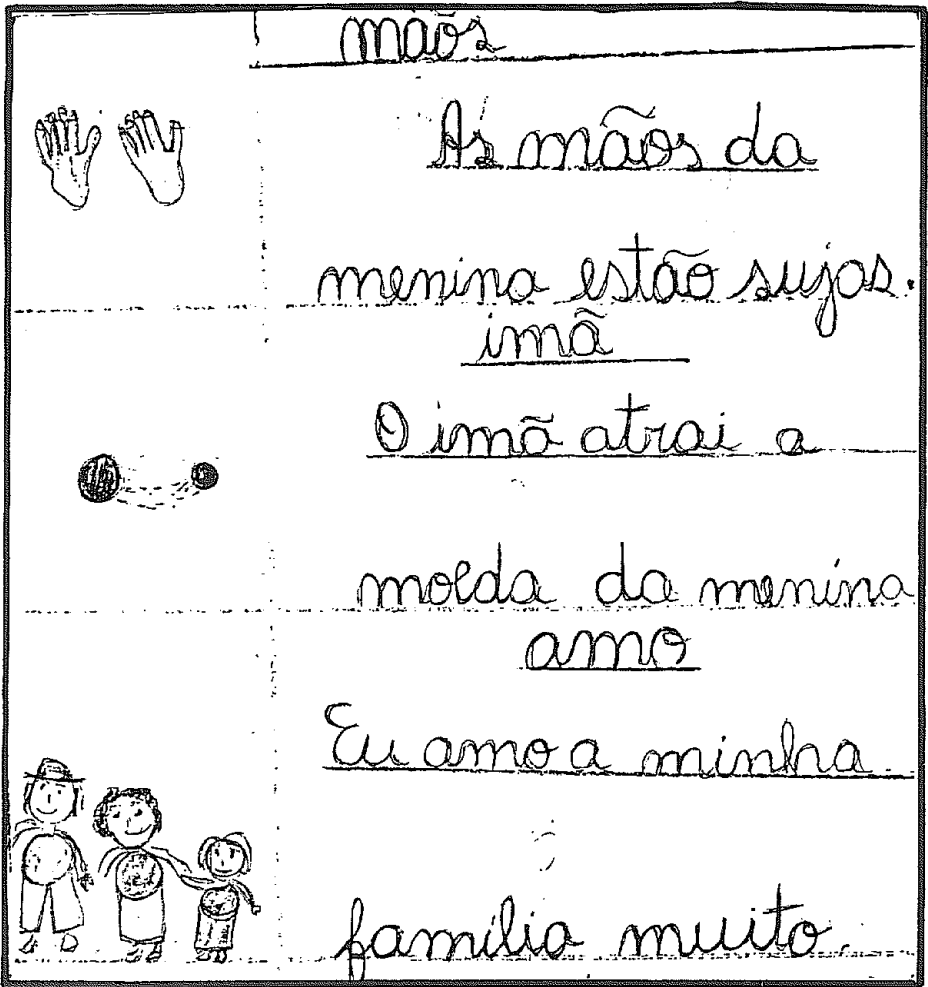 mãos
As mãos da
menina estão sujas.
imã
O imã atrai a
moeda da menina
amo
Eu amo a minha
família muito.